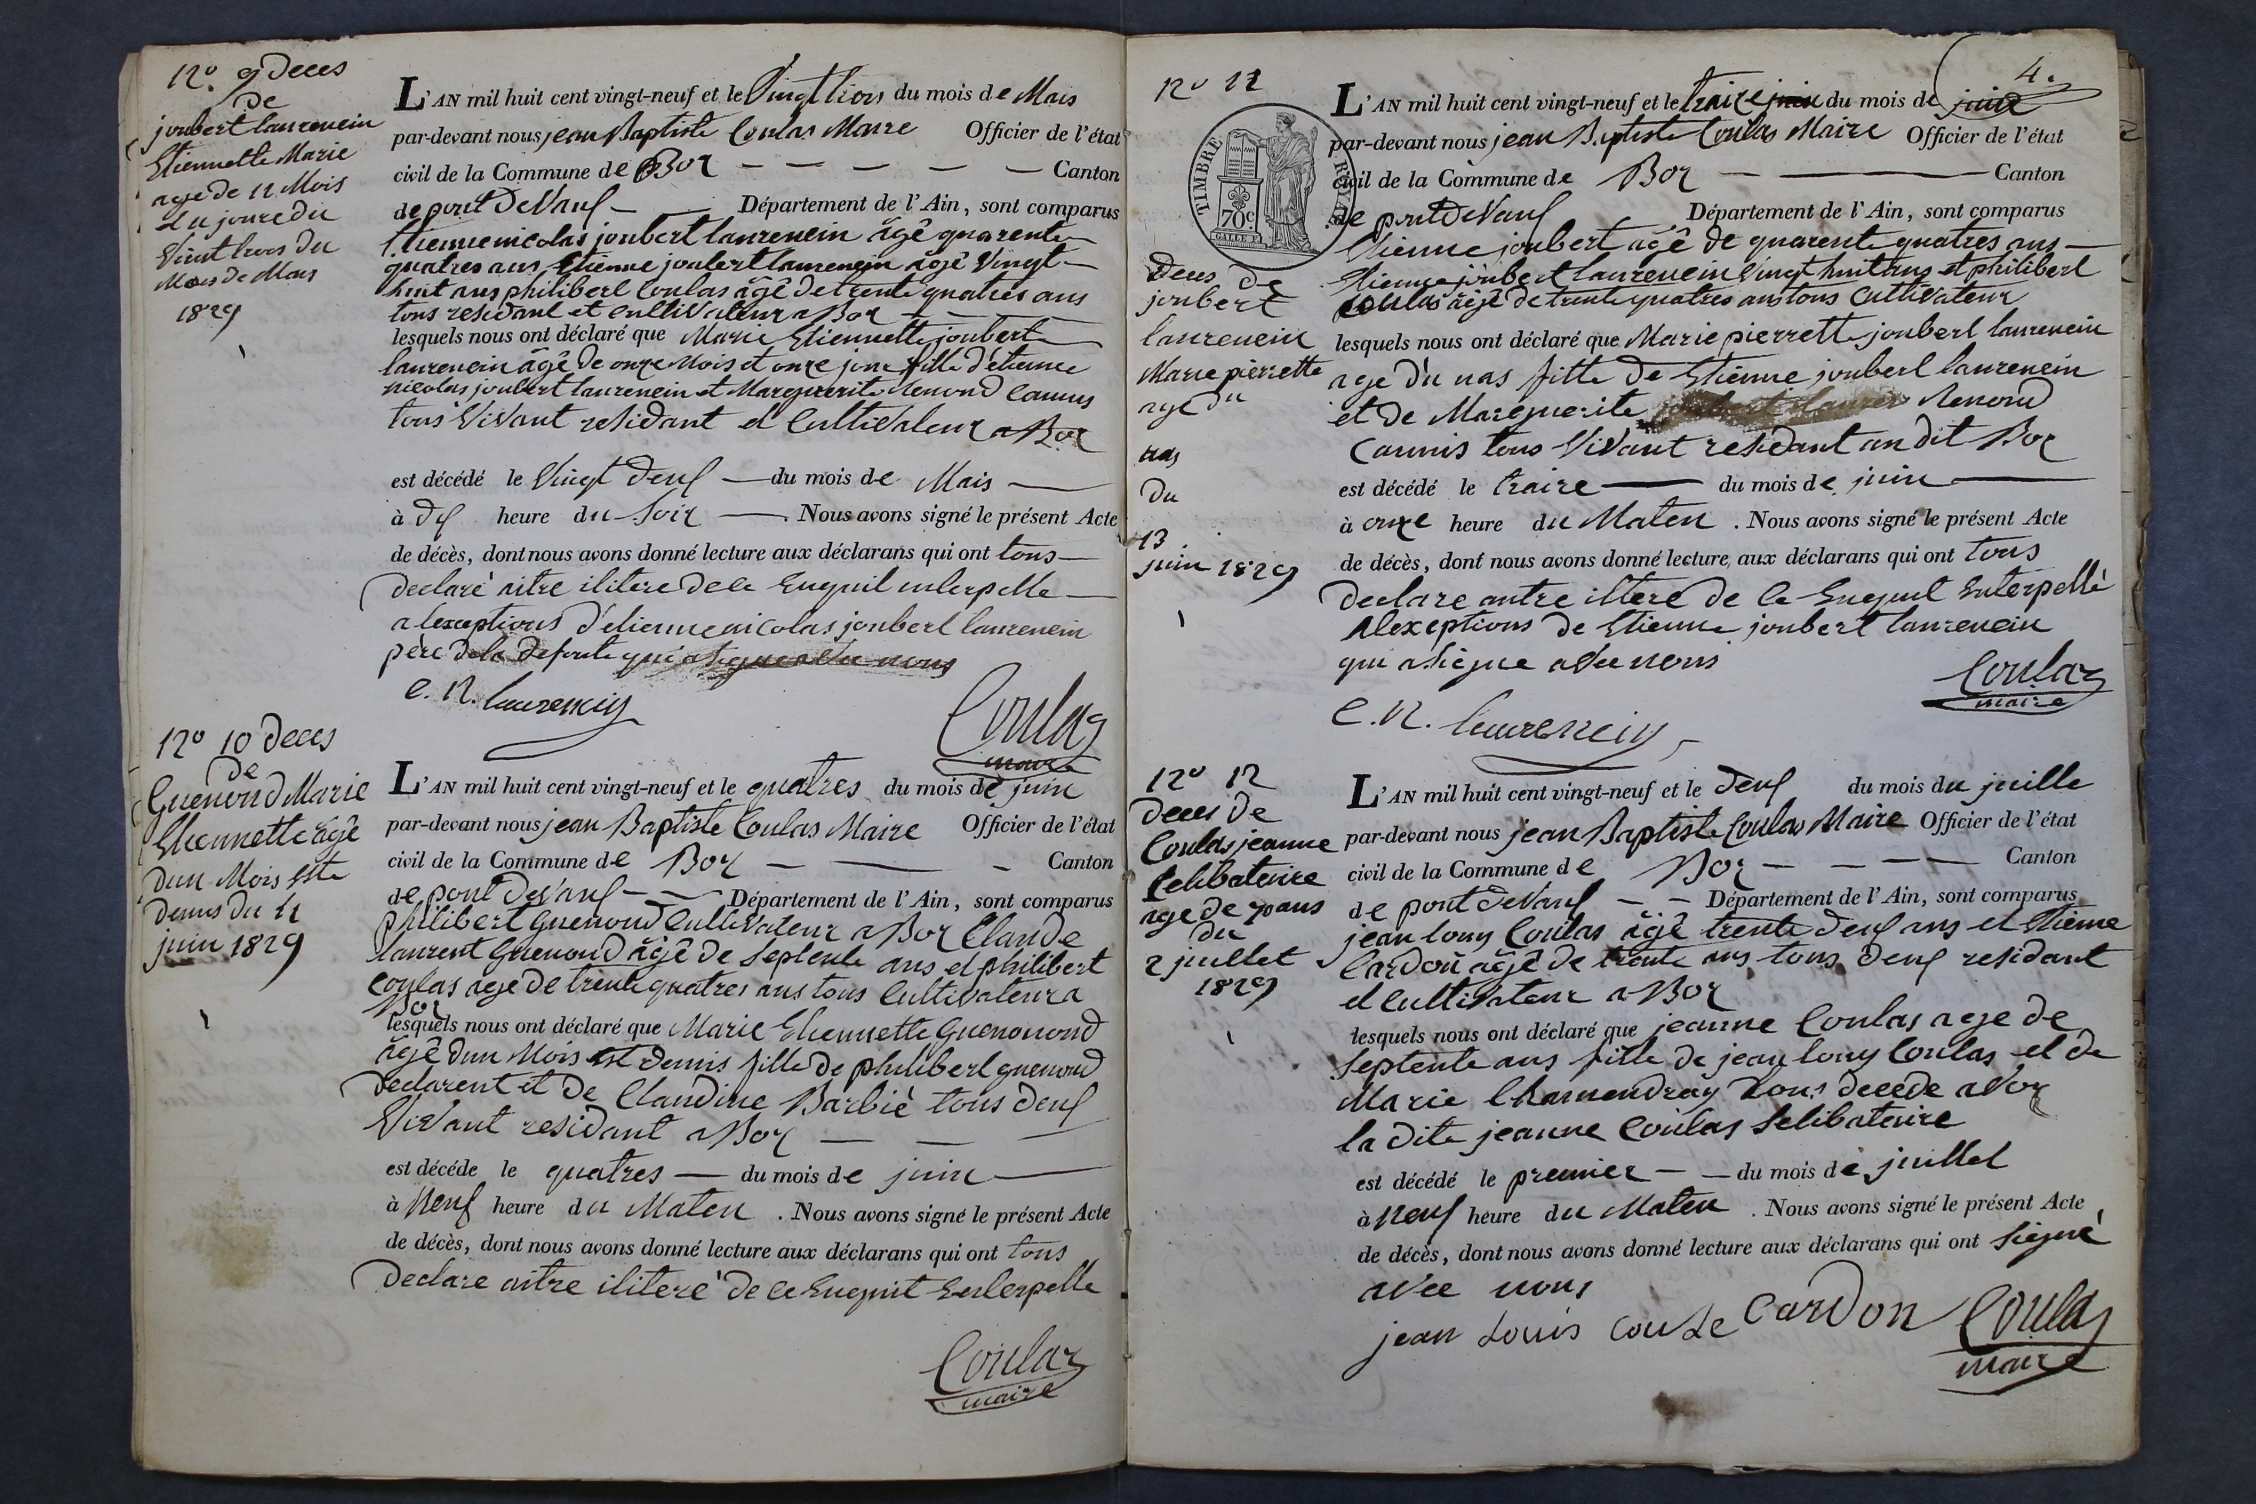 N.º 9 Deces
de
joubert laurencin
Etiennette Marie
age de 11 Mois
du joure du
Vint trois du
Mois de Mars
1829
L'AN mil huit cent vingt-neuf et le Vingt trois du mois de Mars
par-devant nous jean Baptiste Coulas Maire Officier de l'état
civil de la Commune de Boz Canton
de pont DeVaux Département de l'Ain, sont comparus
Etienne nicolas joubert laurencin âgê quarente
quatres ans Etienne joubert laurencin âgê Vingt
huit ans philibert Coulas âgê de trente quatres ans
tous residant et cultivateur a Boz
lesquels nous ont déclaré que Marie Etiennette joubert
laurencin âgê de onze Mois et onze joure fille d'etienne
nicolas joubert laurencin et Marguerite Renoud Camus
tous ViVant residant et CultiVateur a Boz
est décédé le Vingt Deux du mois de Mars
à Dix heure du Soir . Nous avons signé le présent Acte
de décès, dont nous avons donné lecture aux déclarans qui ont tous
declaré aitre ilitere de ce Enquil interpelle
a l'exceptions d'etienne nicolas joubert laurencin
père de la Defunte qui a signe avec nous
e. N. laurencin
Coulas
maire
Nº 10 Deces
De
Guenoud Marie
Etiennette âgê
dun Mois este
demis du 4
juin 1829
L'AN mil huit cent vingt-neuf et le quatres du mois de juin
par-devant nous jean Baptiste Coulas Maire Officier de l'état
civil de la Commune de Boz Canton
de pont DeVaux Département de l'Ain, sont comparus
philibert Guenoud CultiVateur a Boz Claude
laurent Guenoud âgê de Septente ans et philibert
Coulas age de trente quatres ans tous Cultivateur a
Boz
lesquels nous ont déclaré que Marie Etiennette Guenououd
âgê dun Mois est demis fille de philibert guenoud
Declarent et de Claudine Barbiè tous deux
ViVant residant a Boz
est décédé le quatres du mois de juin
à Neuf heure du Maten . Nous avons signé le présent Acte
de décès, dont nous avons donné lecture aux déclarans qui ont tous
Declare aitre ilitere de ce Enquit Enterpelle
Coulas
maire
4.
Nº 11
TIMBRE ROYAL
70c
Deces De
joubert
laurencin
Marie pierrette
age du
nas
Du
13
juin 1829
L'AN mil huit cent vingt-neuf et le traize juin du mois de juin
par-devant nous jean Baptiste Coulas Maire Officier de l'état
civil de la Commune de Boz Canton
de pont DeVaux Département de l'Ain, sont comparus
Etienne joubert âgê de quarente quatres ans
Etienne joubert laurencin Vingt huit ans et philibert
Coulas âgê de trente quatres ans tous CultiVateur
lesquels nous ont déclaré que Marie pierrette joubert laurencin
age du nas fille de Etienne joubert laurencin
et de Marguerite Renoud
Camus tous ViVant residant au dit Boz
est décédé le traize du mois de juin
à onze heure du Maten . Nous avons signé le présent Acte
de décès, dont nous avons donné lecture aux déclarans qui ont tous
Declare aitre iltere de ce Enquet Enterpellè
Alexeptions de Etienne joubert laurencin
qui a siègne aVec nous
Coulas
maire
e. N. laurencin
Nº 12
Deces De
Coulas jeanne
Celibataire
age de 70 ans
du
2 juillet
1829
L'AN mil huit cent vingt-neuf et le deux du mois du juille
par-devant nous jean Baptiste Coulas Maire Officier de l'état
civil de la Commune de Boz Canton
de pont DeVaux Département de l'Ain, sont comparus
jean louy Coulas âgê trente deux ans et Etienne
Cardon âgê de trente ans tous deux residant
et CultiVateur a Boz
lesquels nous ont déclaré que jeanne Coulas age de
Septente ans fille de jean louy Coulas et de
Marie Chamendray tous decede a Boz
la dite jeanne Coulas Selibataire
est décédé le premier du mois de juillet
à Neuf heure du Maten . Nous avons signé le présent Acte
de décès, dont nous avons donné lecture aux déclarans qui ont siegné
aVec nous
jean Louis Coulas Cardon Coulas
maire